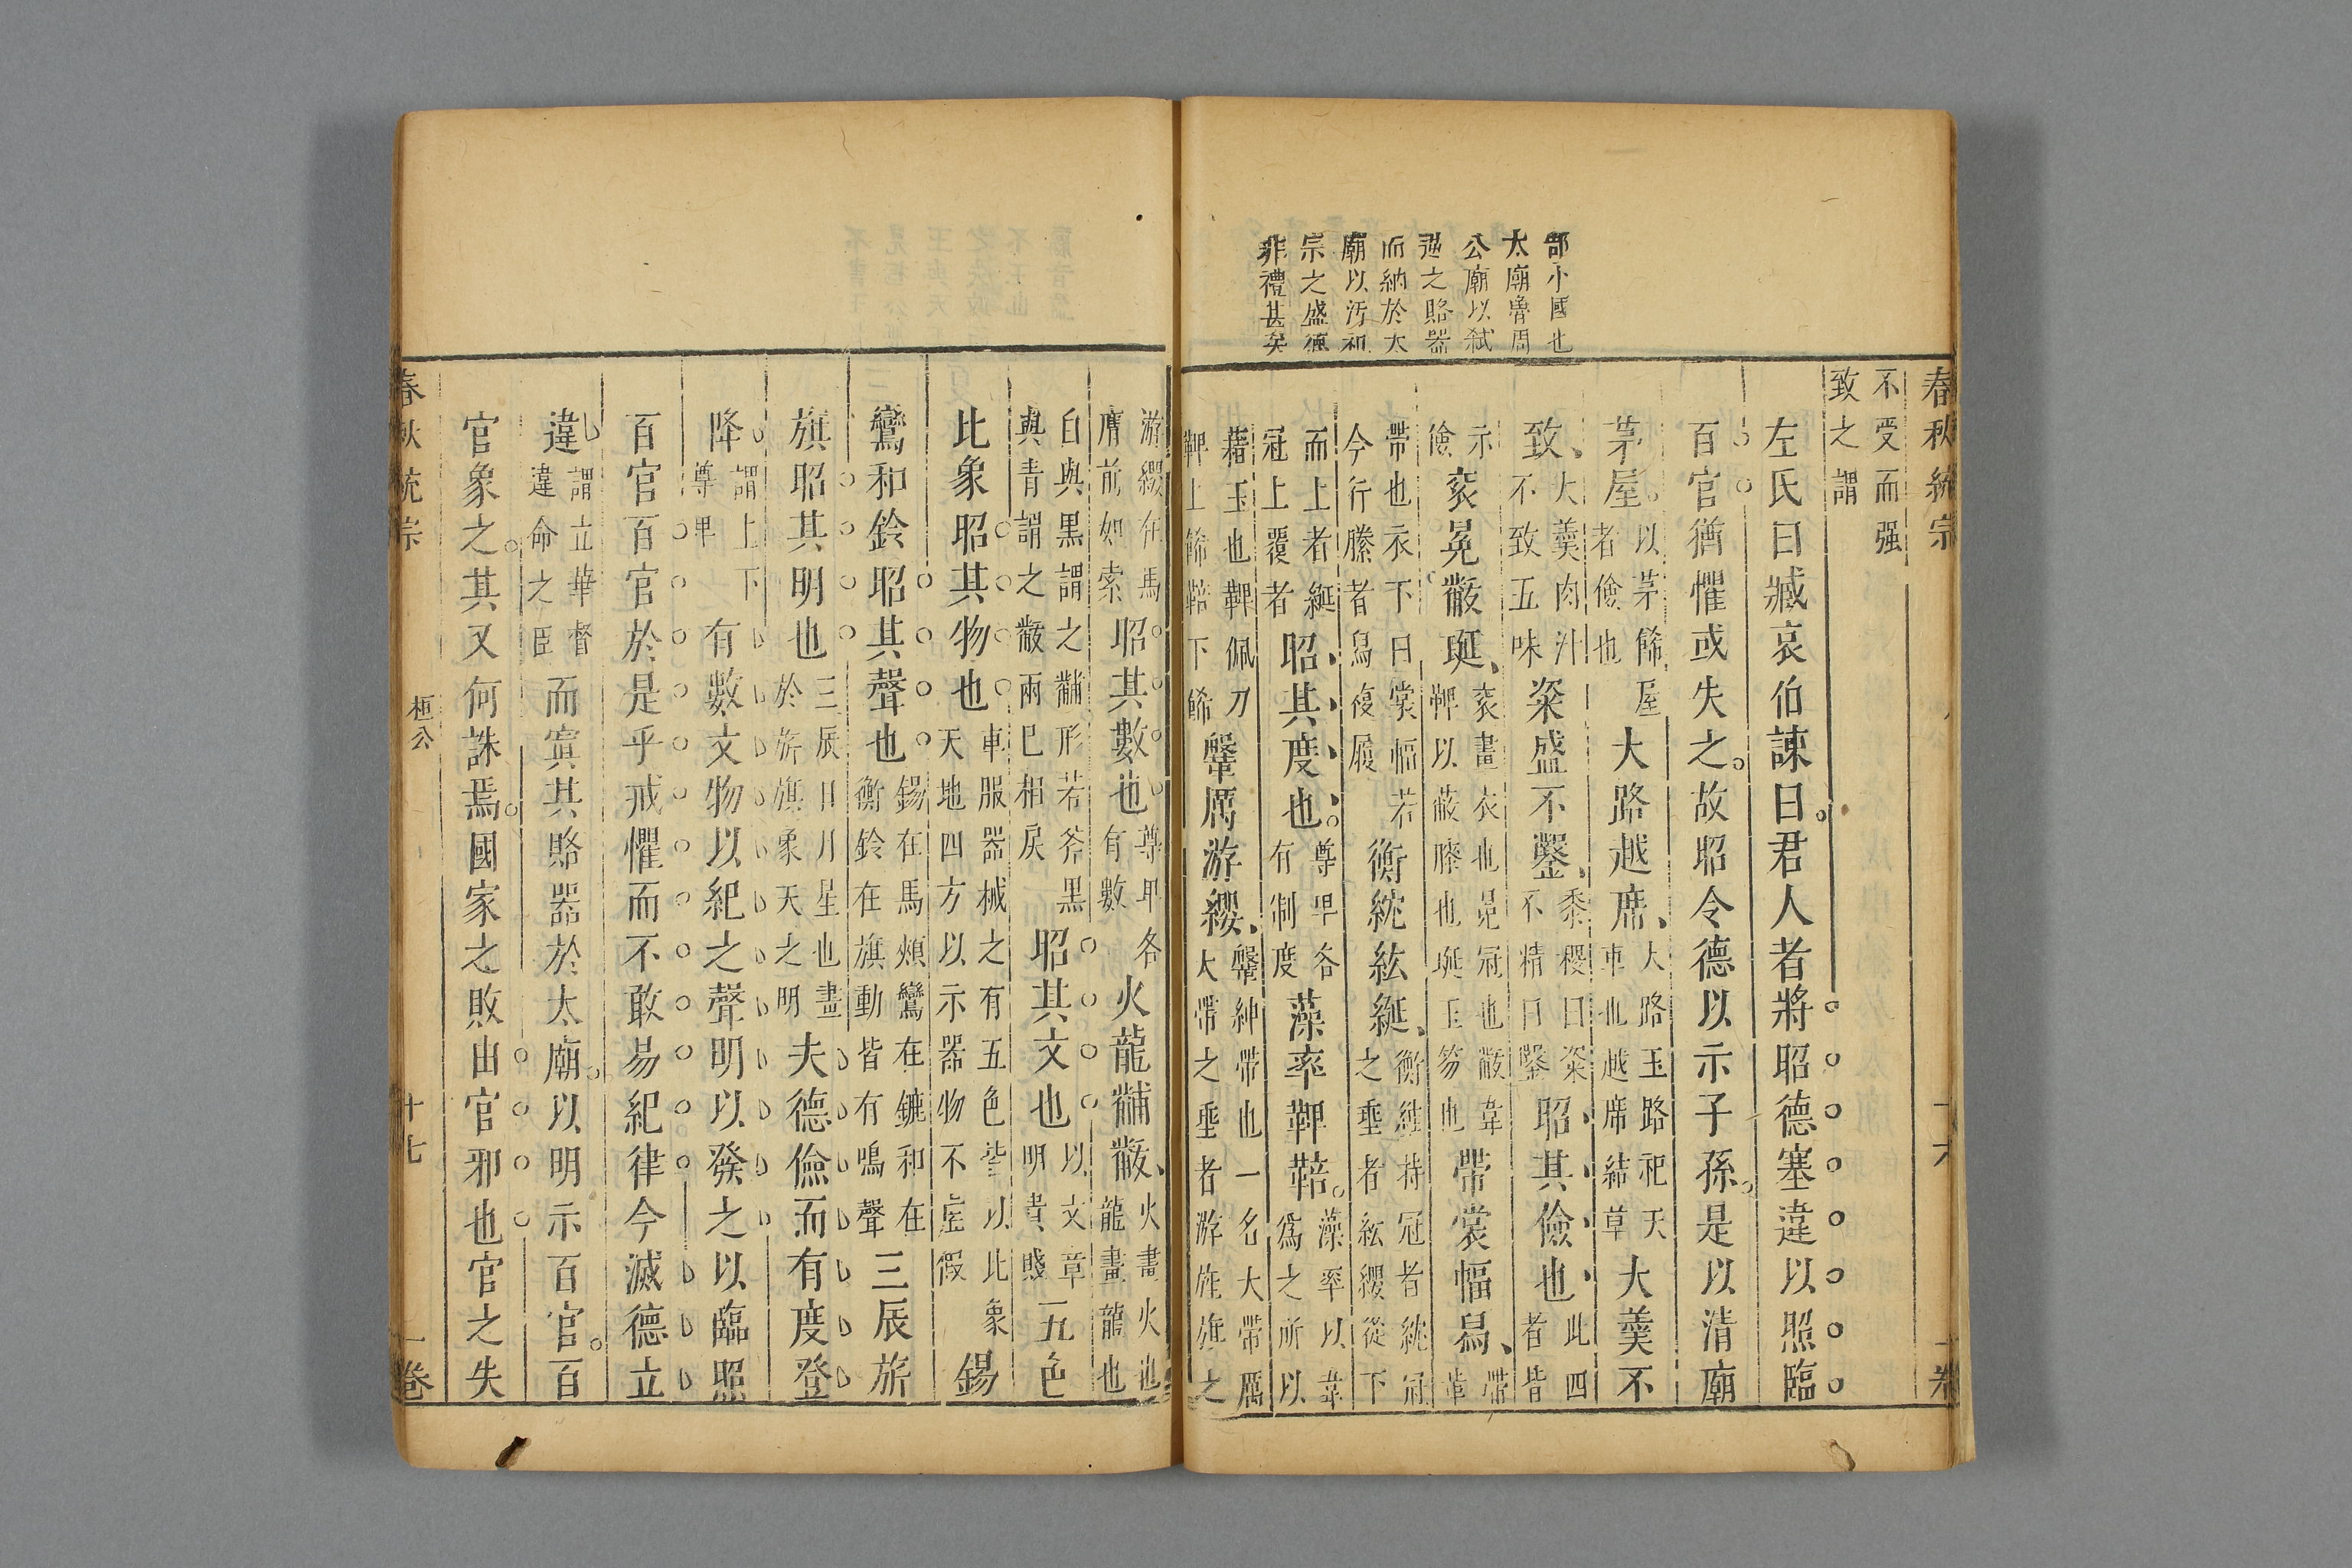 春秋統宗
郜小國也
太廟魯周
公廟以弑
逆之賂器
而納於太
廟以汚祖
宗之盛德
非禮甚矣
不受而强
致之謂
左氏曰臧哀伯諫曰君人者將昭德塞違以照臨
百官猶懼或失之故昭令德以示子孫是以清廟
茅屋以茅餙屋者儉也大路越席大路玉路祀天車也越席結草大羹不
致大羹肉汁不致五味粢盛不鑿黍稷曰粢不精曰鑿昭其儉也此四者皆
示儉衮冕黻珽衮畫衣也冕冠也黻韋鞸以蔽膝也珽玉笏也帶裳幅舄帶革
帶也衣下曰裳幅若今行縢者舄複履衡紞紘綖衡維持冠者紞冠之垂者紘纓從下
而上者綖冠上覆者昭其度也尊卑各有制度藻率鞞鞛藻率以韋爲之所以
藉玉也鞞佩刀鞞上餙鞛下餙鞶厲游纓鞶紳帶也一名大帶厲大帶之垂者游旌旗之
游纓在馬膺前如索昭其數也尊卑各有數火龍黼黻火畫火也龍畫龍也
白與黑謂之黼形若斧黑與青謂之黻兩巳相戾昭其文也以文章明貴賤五色
比象昭其物也車服器械之有五色皆以比象天地四方以示器物不虗假錫
鸞和鈴昭其聲也錫在馬頰鸞在鑣和在衡鈴在旗動皆有鳴聲三辰旂
旗昭其明也三辰日月星也畫於旂旗象天之明夫德儉而有度登
降謂上下尊卑有數文物以紀之聲明以發之以臨照
百官百官於是乎戒懼而不敢易紀律今滅德立
違謂立華督違命之臣而寘其賂器於太廟以明示百官百
官象之其又何誅焉國家之敗由官邪也官之失
春秋統宗 桓公 十七 一卷